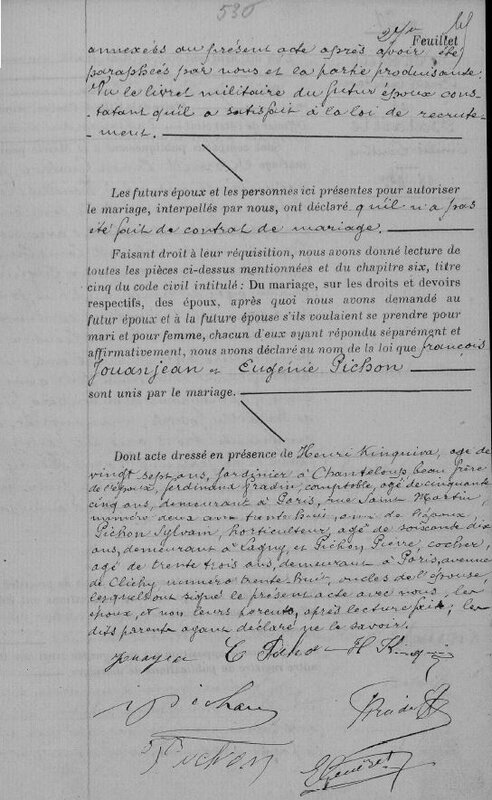 530
Feuillet
annexées au présent acte après avoir été
paraphées par nous et la partie produisante.
Vu le livret militaire du futur époux cons-
-tatant qu'il a satisfait à la loi de recrute-
ment.
Les futurs époux et les personnes ici présentes pour autoriser
le mariage, interpellés par nous, ont déclaré qu'il n'a pas
été fait de contrat de mariage.
Faisant droit à leur réquisition, nous avons donné lecture de
toutes les pièces ci-dessus mentionnées et du chapitre six, titre
cinq du code civil intitulé : Du mariage, sur les droits et devoirs
respectifs, des époux, après quoi nous avons demandé au
futur époux et à la future épouse s'ils voulaient se prendre pour
mari et pour femme, chacun d'eux ayant répondu séparément et
affirmativement, nous avons déclaré au nom de la loi que François
Jouanjean et Eugénie Pichon
sont unis par le mariage.
Dont acte dressé en présence de Henri Kinquiva, agé de
vingt sept ans, jardinier à Chanteloup, beau frère
de l'époux, Ferdinand Pradin, comptable, agé de cinquante
cinq ans, demeurant à Paris, rue Saint Martin,
numéro deux cent trente huit, ami de l'époux,
Pichon Sylvain, horticulteur, agé de soixante dix
ans, demeurant à Lagny, et Pichon Pierre, cocher,
agé de trente trois ans, demeurant à Paris, avenue
de Clichy numéro trente-huit, oncles de l'épouse,
lesquels ont signé le présent acte avec nous, les
époux, et non leurs parents, après lecture faite, les
dits parents ayant déclaré ne le savoir.
E Pichon H K
Pichon
Pichon